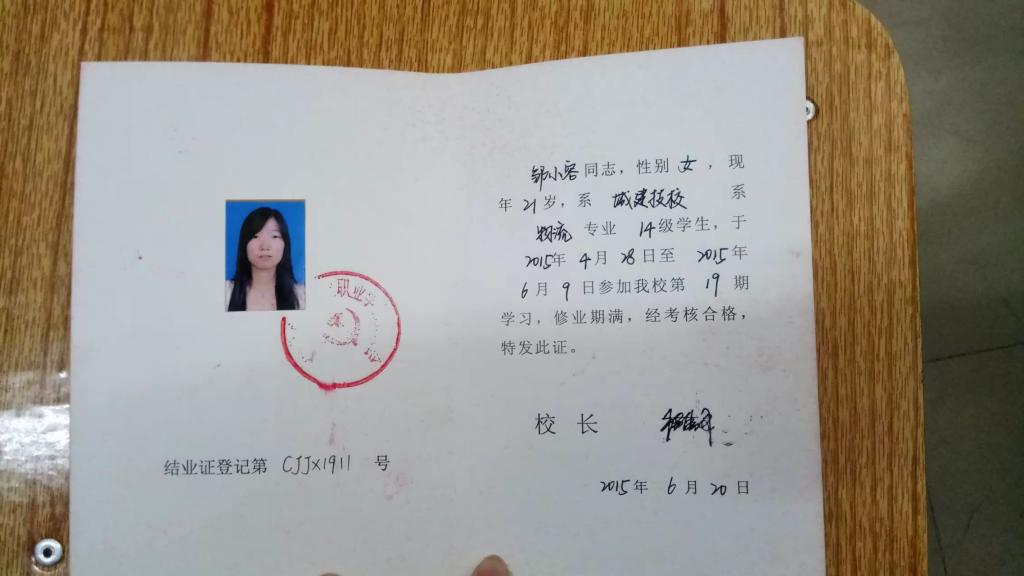 邹小容同志，性别女，现
年21岁，系 城建技校 系
物流 专业 14级学生，于
2015年4月28日至 2015年
6月9日参加我校第 19 期
学习，修业期满，经考核合格，
特发此证。
校 长
2015年 6月20日
职业
结业证登记第 CJJX1911 号